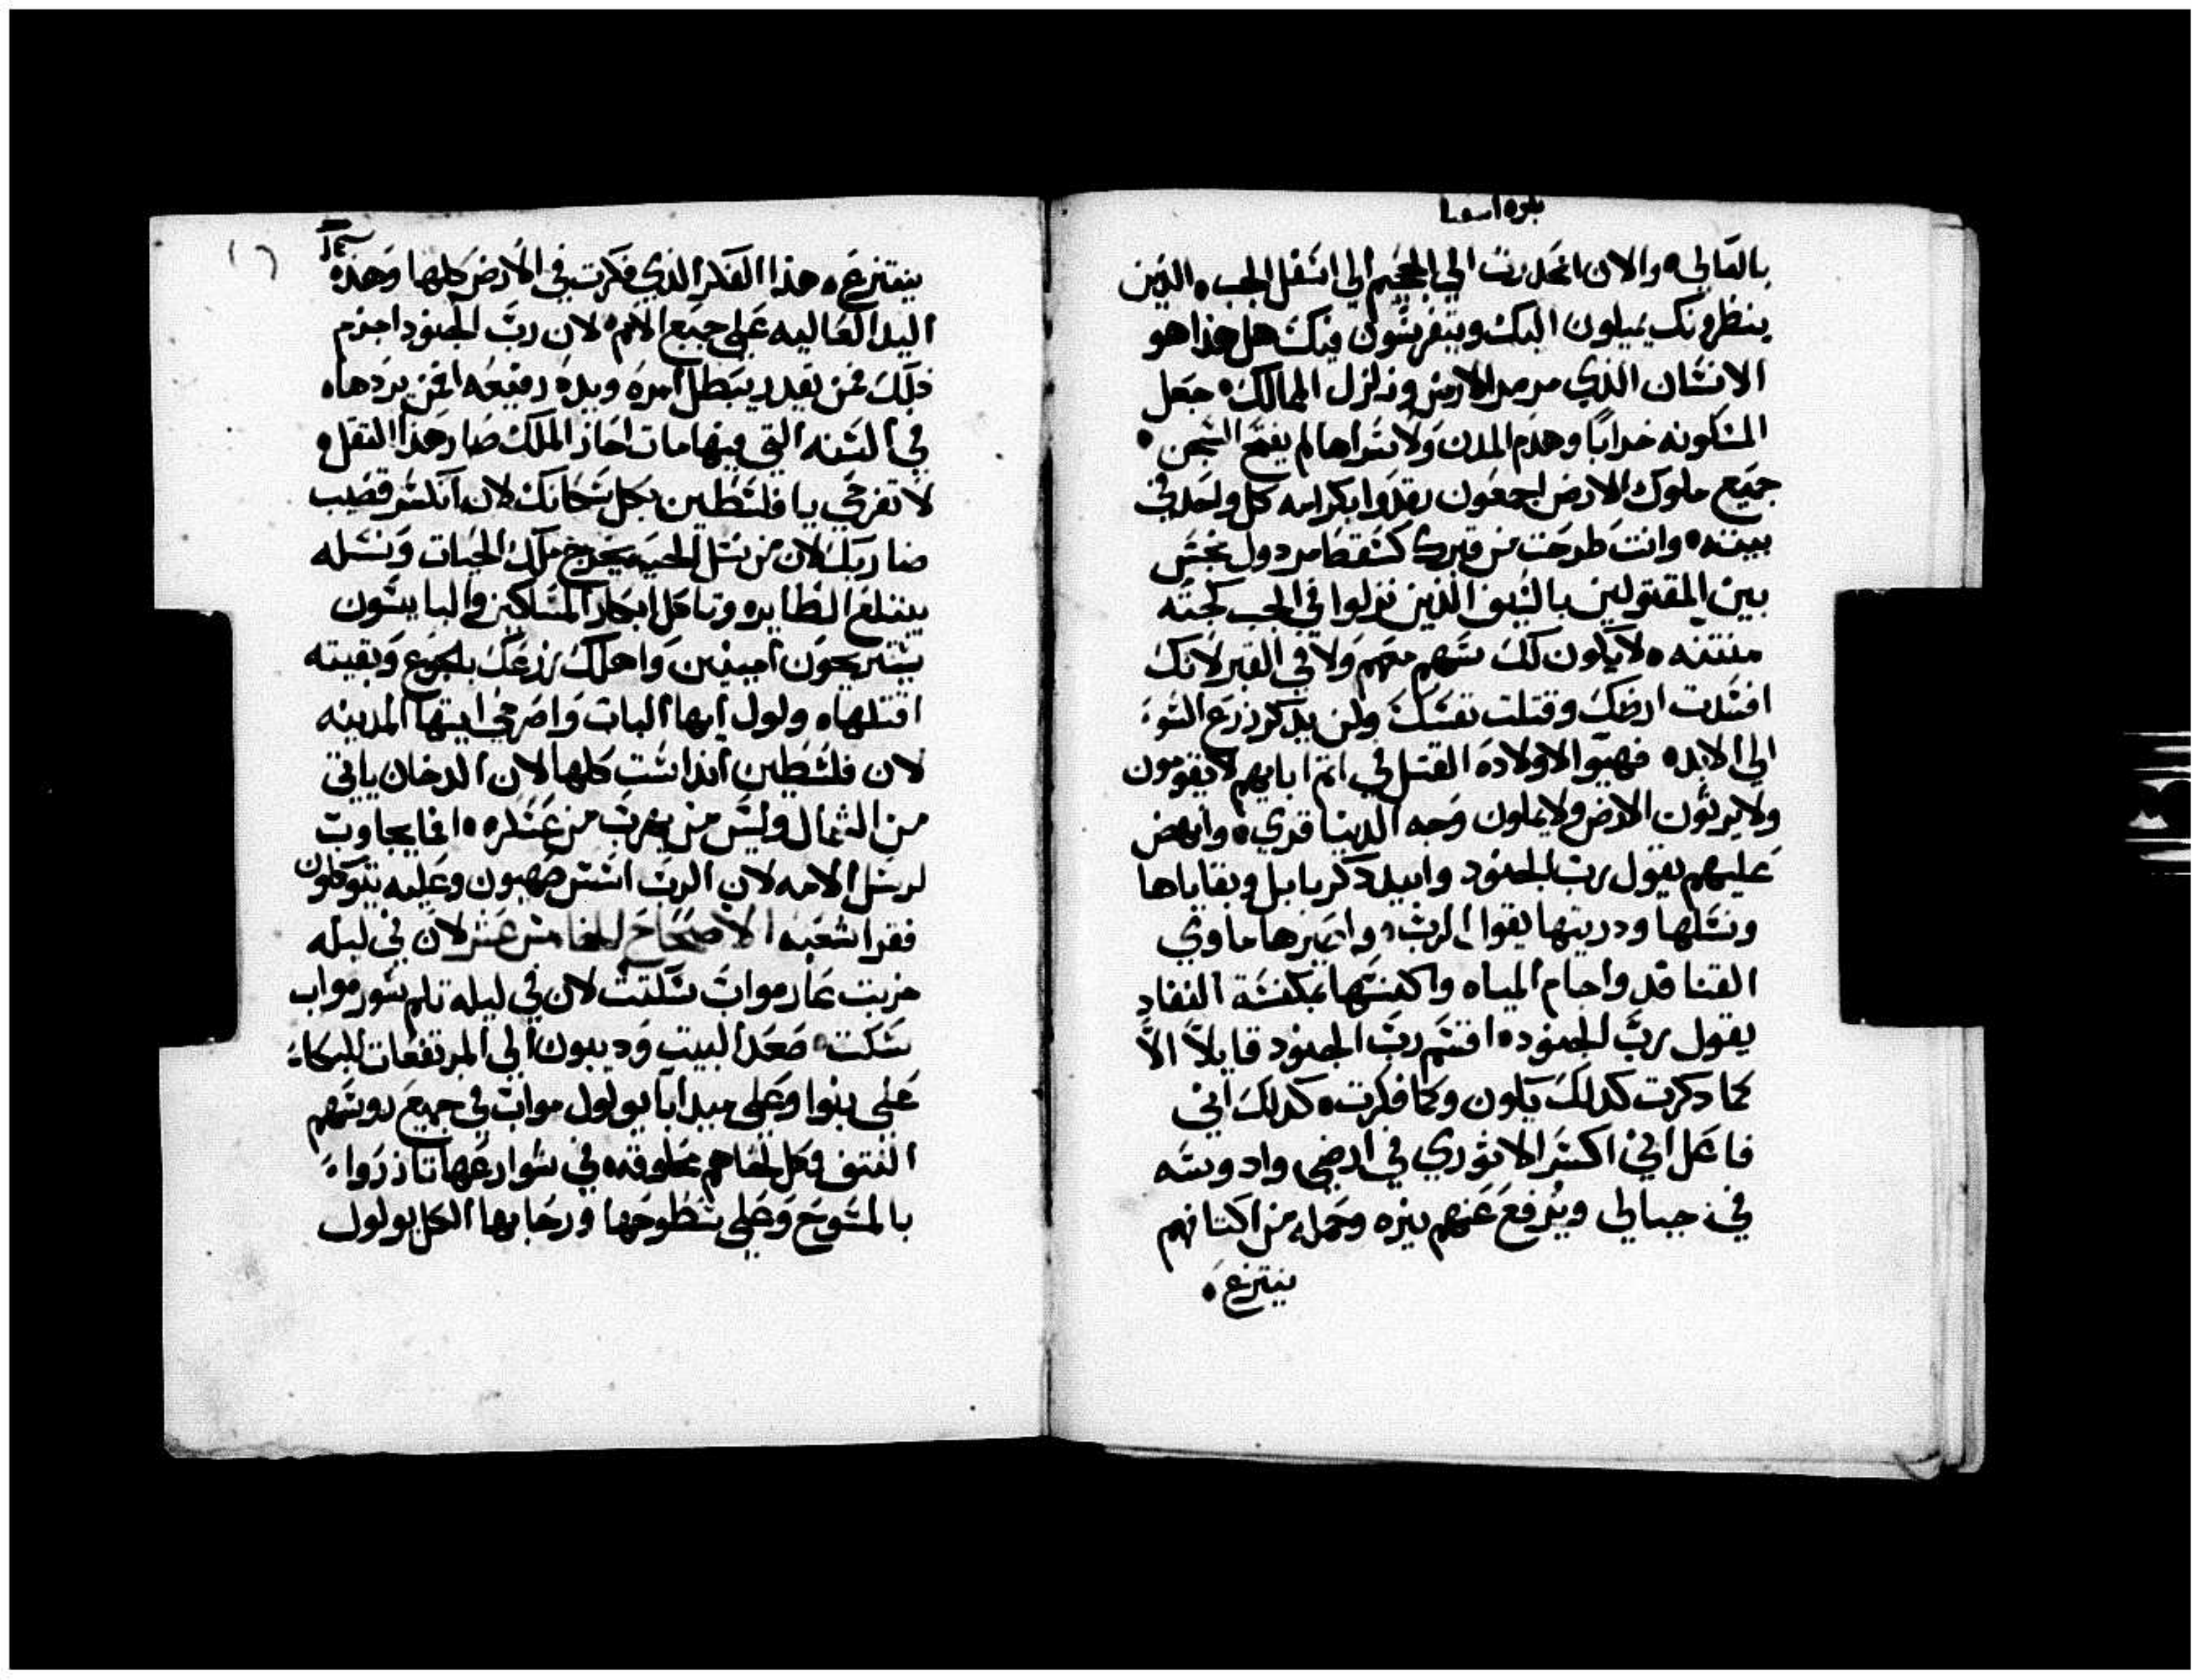 نبوه اسعيا
بالعالي ۰ والان انحدرت الي الجحيم الي اسفل الجب ۰ الذين
ينظرونك يميلون اليك ويتفرسون فيك هل هذا هو
الانسان الذي مرمر الارض وزلزل الممالك ۰ جعل
المسكونه خرابًا وهدم المدن ولاسراها لم يفتح السجن ۰
جميع ملوك الارض اجمعون رقدوا بكرامه كل واحد في
بيته ۰ وانت طرحت من قبرك كسقط مردول نجس
بين المقتولين بالسيف الذين نزلوا في الجب كجته
منتنه ۰ لا يكون لك سهم معهم ولا في القبر لانك
افسدت ارضك وقتلت نفسك ولن يدكر زرع السوء
الي الابد ۰ فهيوا لاولاده القتل في اتم ابايهم لا يقومون
ولا يرثون الارض ولا يملون وجه الدنيا قري ۰ وانهض
عليهم يقول رب الجنود وابيد دكر بابل وبقاياها
ونسلها ودريتها يقول الرب ۰ واصيرها ماوي
القنافد واجام المياه واكنسها بمكنسة النفاد
يقول رب الجنود ۰ اقسم رب الجنود قايلاً الاَّ
كما دكرت كدلك يكون وكما فكرت ۰ كدلك اني
فاعل اني اكسر الاتوري في ارضي وادوسه
في جبالي ويرفع عنهم نيره وحمله من اكتافهم
ينتزع ۰
ينتزع ۰ هذا الفكر الذي فكرت في الارض كلها وهذه
اليد العاليه علي جميع الامم لان رب الجنود اجزم
ذلك فمن يقدر يبطل امره ويده رفيعه فمن يردها ۰
في السنه التي فيها مات احاز الملك صار هذا التقل ۰
لا تفرحي يا فلسطين بكل سكانك لان انكسر قضيب
ضاربك لان من نسل الحيه يخرج ملك الحيات ونسله
يبتلع الطايره وتاكل ابكار المساكين والبايسون
يستريحون امينين واهلك زرعك بالجوع وبقيته
اقتلها ۰ ولول ايها الباب واصرخي ايتها المدينه
لان فلسطين انداست كلها لان الدخان ياتي
من الشمال وليس من يهرب من عسكره ۰ افما يجاوب
لرسل الامه لان الرب اسس صهيون وعليه يتوكلون
فقرا شعبه الاصحاح الخامس عشر لان في ليله
خربت عار مواب سكتت لان في ليله تلم سور مواب
سكت ۰ صعد البيت وديبون الي المرتفعات للبكاء
علي نبوا وعلي ميدابا يولول مواب في جميع روسهم
النتف وكل لحاهم محلوقه ۰ في شوارعها تاذروا
بالمسوح وعلي سطوحها ورحابها الكل يولول